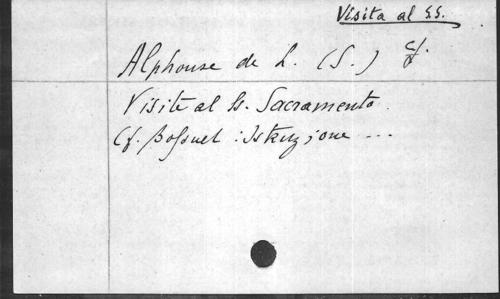 Visita al SS.
Alphonse de L. (S.) cf.
Visite al SS. Sacramento.
Cf. Bossuet : Istruzione ...